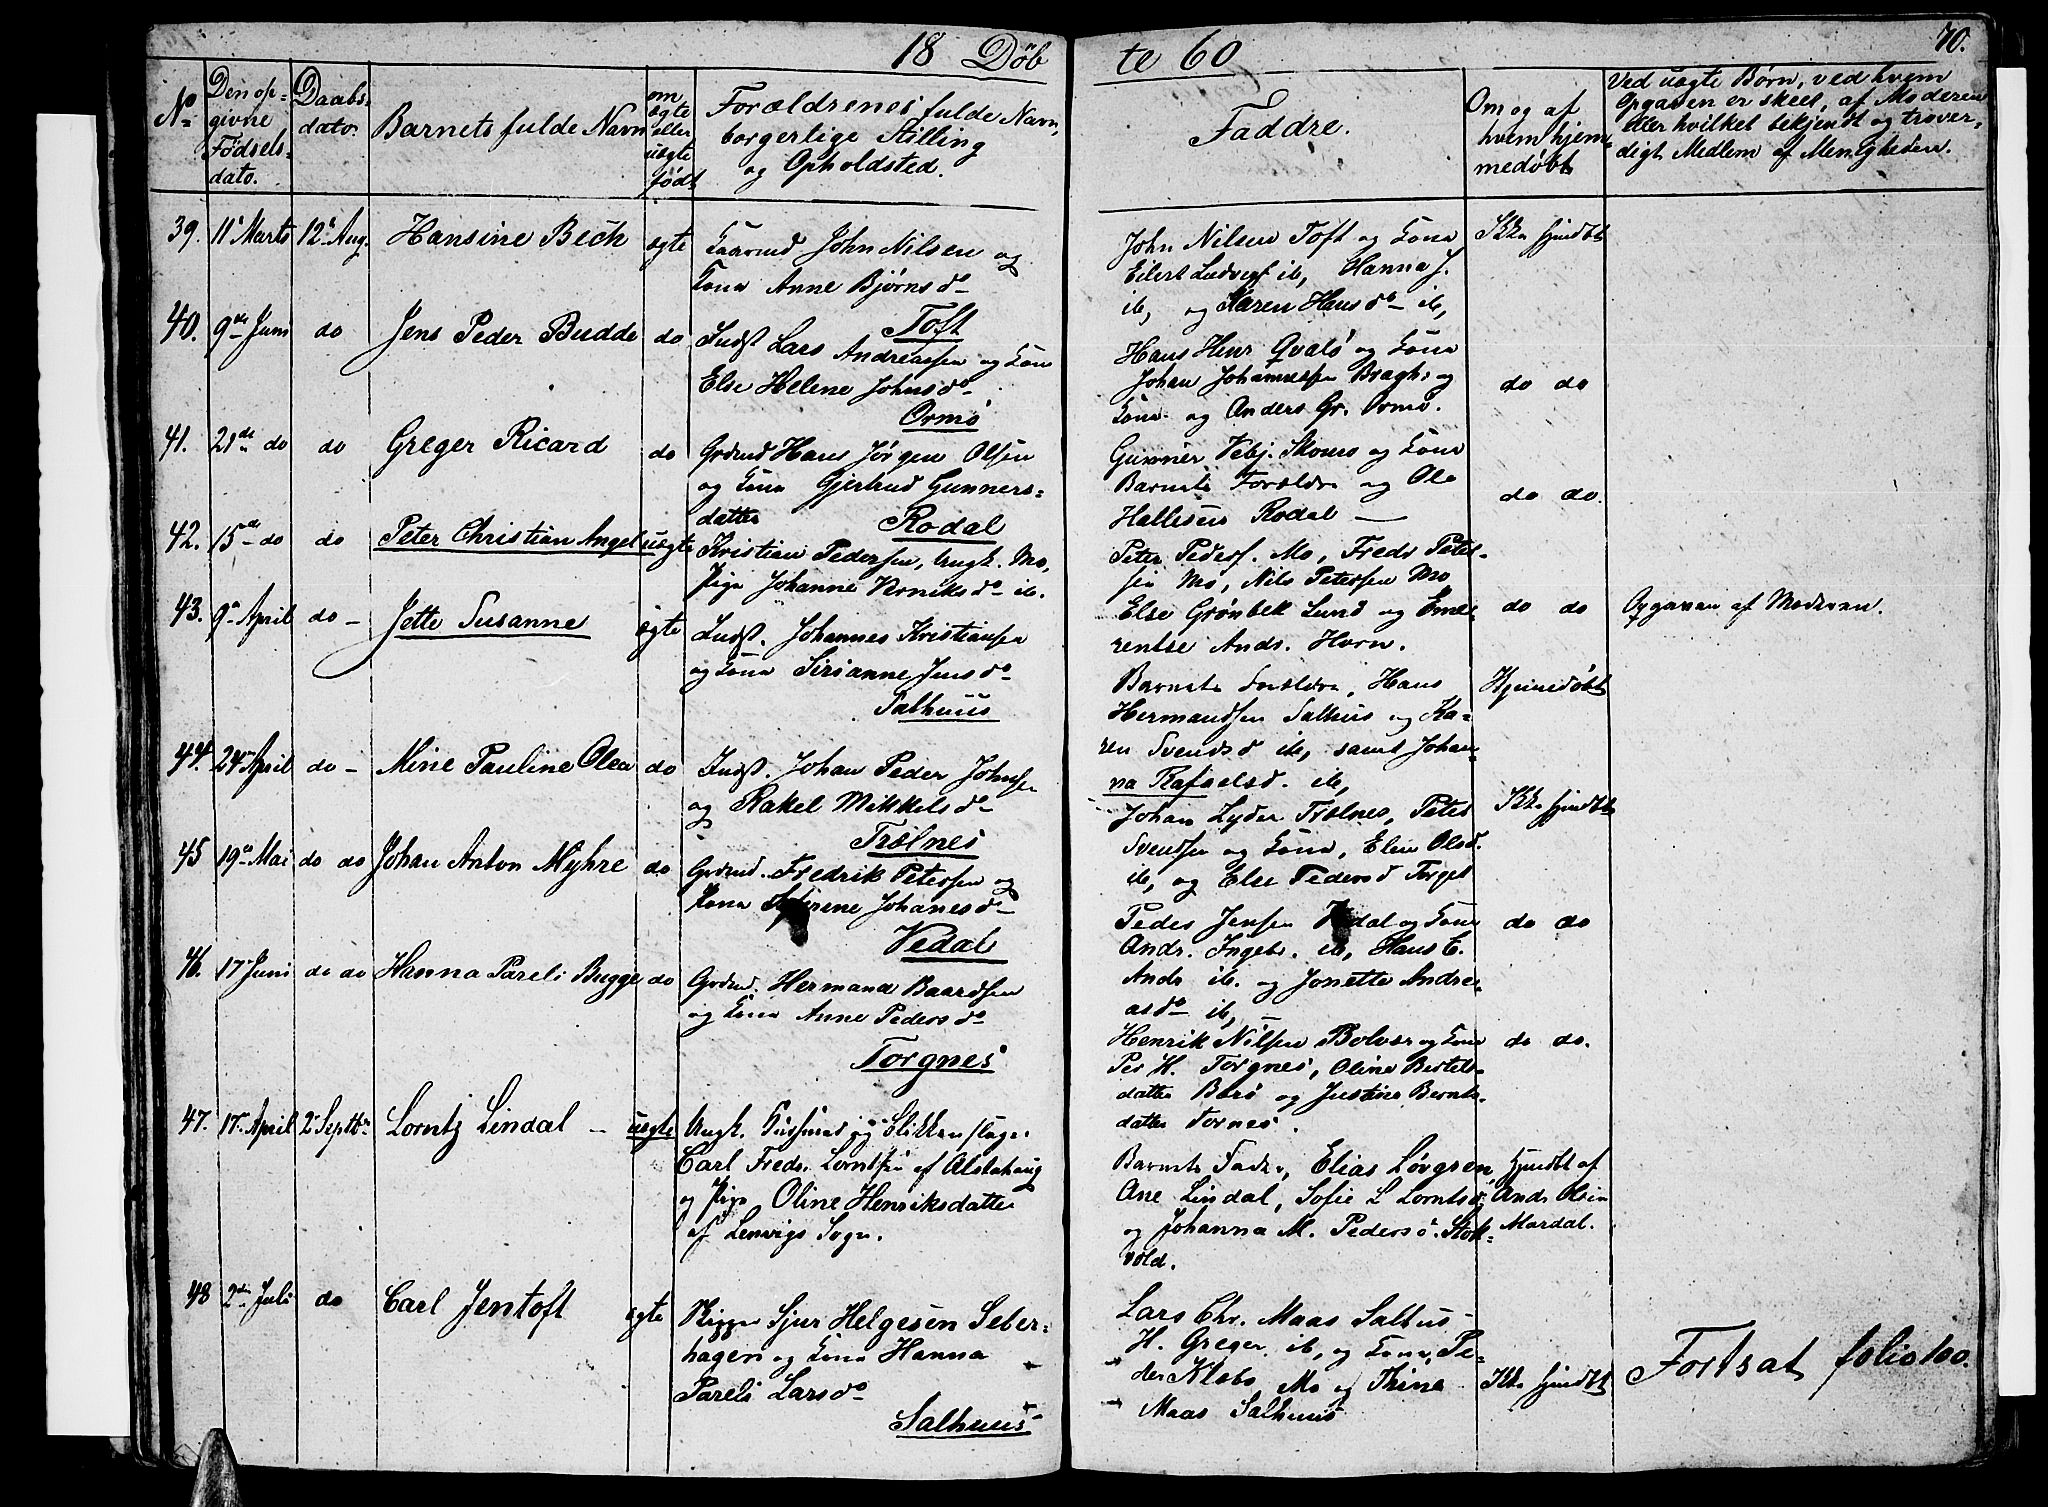 18 Døb
te 60
70.
No
Den op-
givne
Fødsels-
dato.
Daabs-
dato.
Barnets fulde Navn
om
ægte
eller
uægte
født
Forældrenes fulde Navn,
borgerlige Stilling
og Opholdsted.
Faddre.
Om og af
hvem hjem-
medøbt
Ved uægte Børn, ved hvem
Opgaven er skeet, af Moderen
eller hvilket bekjendt og trover-
digt Medlem af Menigheden.
39. 11te Marts 12te Aug. Hansine Bech ægte
Gaarmd John Nilsen og
Kone Anne Bjørnsd.
Toft
John Nilsen Toft og Kone
Eilert Ludvigs ib, Hanna J.
ib, og Karen Hansd. ib,
Ikke hjmdøbt
40. 9de Juni do Jens Peder Budde do
Indst Lars Andreassen og Kone
Else Helene Johnsd.
Ormø
Hans Henr Qvalø og Kone
Johan Johannessen Bragh. og
Kone og Anders Gr. Ormø.
do do
41. 21de do do Greger Ricard do
Grdmd Hans Jørgen Olsen
og Kone Gjertrud Gunners-
datter Rodal
Gunner Vebj. Skomo og Kone
Barnets Forældre og Ole
Rodal
do do.
42. 15de do do Peter Christian Angel uægte
Kristian Pedersen, Ungk. Mo,
Pige Johanne Verniksd. ib.
Peter Peders. Mo, Fredr Peter-
sen Mo, Nils Petersen Mo
Else Grønbek Lund og Eme-
rentse Andr. Horn.
do do Opgaven af Moderen.
43. 9de April do Jette Susanne ægte
Indst. Johannes Kristiansen
og Kone Sirianne Jensd.
Salhuus
Barnets Forældre, Hans
Hermandsen Salhus og Ka-
ren Svendsd ib, samt Johan-
na Rafaelsd. ib,
Hjemedøbt
44. 24de April do Mine Pauline Olea do
Indst. Johan Peder Johnsen
og Rakel Mikkelsd.
Trælnes
Johan Lyder Trælnes, Peter
Svendsen og Kone, Elen Olsd.
ib, og Else Pedersd Torget
Ikke hjmdøbt
45 19de Mai do do Johan Anton Myhre do
Grdmd. Fredrik Petersen og
Kone Johanesd.
Vedal
Peder Jensen Vedal og Kone
Andr. Ingebr. ib, Hans E.
Andr ib. og Jonette Andre-
asd. ib,
do do
46. 17 Juni do do Hanna Pareli Bugge do
Grdmd. Hermand Baardsen
og Kone Anne Pedersd.
Torgnes
Henrik Nilsen Bolvær og Kone
Per H. Torgnes, Oline Bertels-
datter Borø og Justine Bernts-
datter Tornes.
do do.
47. 17. April 2 Septbr Lorntz Lindal uægte
Ungk. og Blikkenslager
Carl Fredr. Lorntsen af Alstahaug
og Pige Oline Henriksdatter
af Lenvigs Sogn.
Barnets Fader, Elias
Ane Lindal, Sofie L Lorntsd.
og Johanna M. Pedersd. Stok-
vold.
Hjmdøbt af
Andr Olsen
Mardal.
48 2den Juli do Carl Jentoft ægte
Sjur Helgesen Seber-
hagen og Kone Hanna
Pareli Larsd.
Salhuus
Lars Chr. Maas Salhus
H. Greger. ib, og Kone, Pe-
der Klæbo, Mo og Trine
Maas Salhuus
Ikke hjmdøbt
Fortsat folio 100.